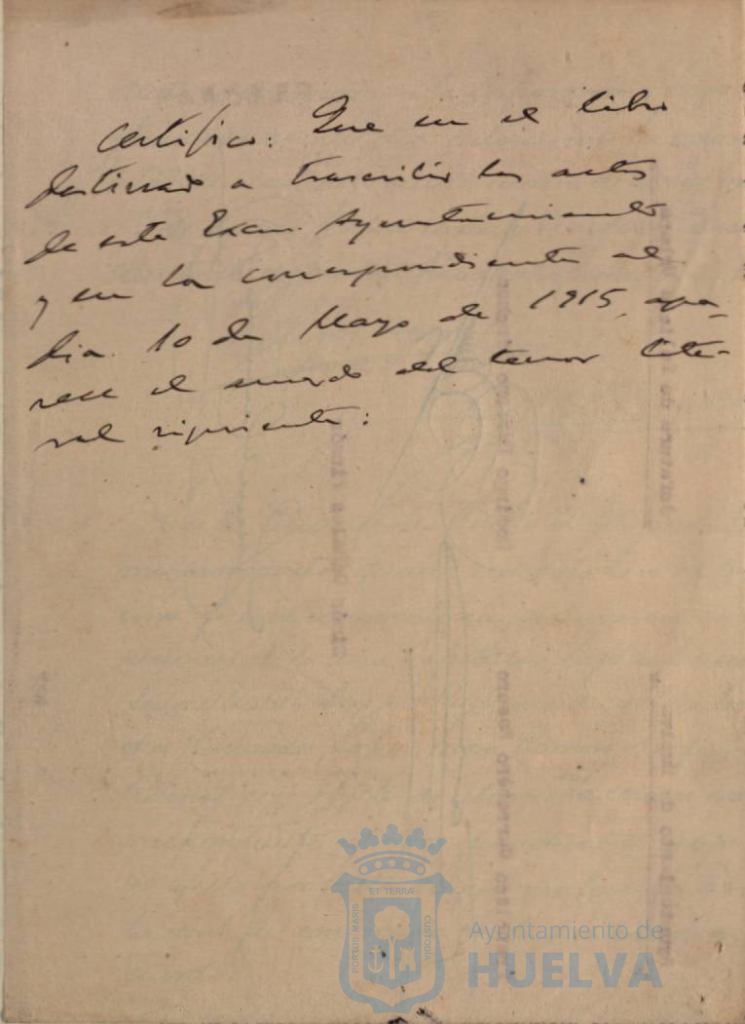 Certifico: Que en el libro
destinado a trascribir las actas
de este Excm. Ayuntamiento
y en la correspondiente al
dia 10 de Mayo de 1915, apa-
rece el acuerdo del tenor lite-
ral siguiente:
ET TERRÆ
PORTUS MARIS
CUSTODIA
Ayuntamiento de
HUELVA